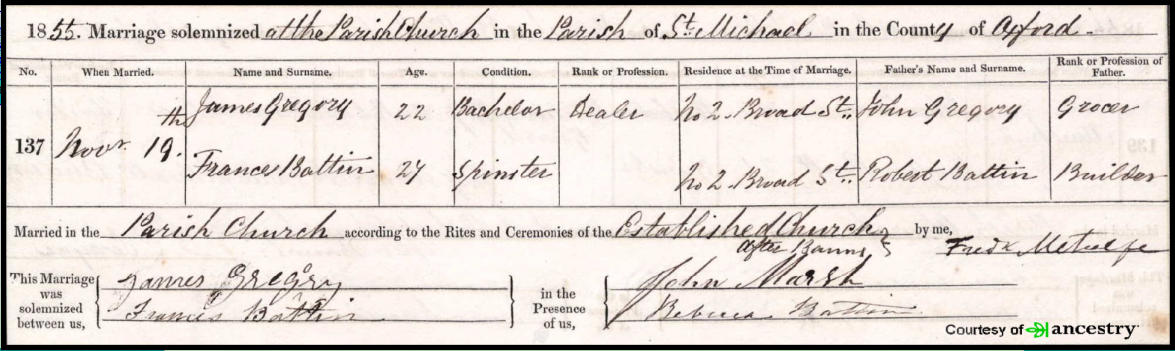 1855. Marriage solemnized at the Parish Church in the Parish of St. Michael in the County of Oxford.
No. When Married. Name and Surname. Age. Condition. Rank or Profession. Residence at the Time of Marriage. Father's Name and Surname. Rank or Profession of Father.
137 Novr. 19th. James Gregory 22 Bachelor Dealer No 2 Broad St. John Gregory Grocer
Frances Battin 27 Spinster No 2 Broad St. Robert Battin Builder
Married in the Parish Church according to the Rites and Ceremonies of the Established Church by me,
after Banns Fredk Metcalfe
This Marriage was solemnized between us, James Gregory in the Presence of us, John Marsh
Frances Battin Rebecca Battin
Courtesy of ancestry